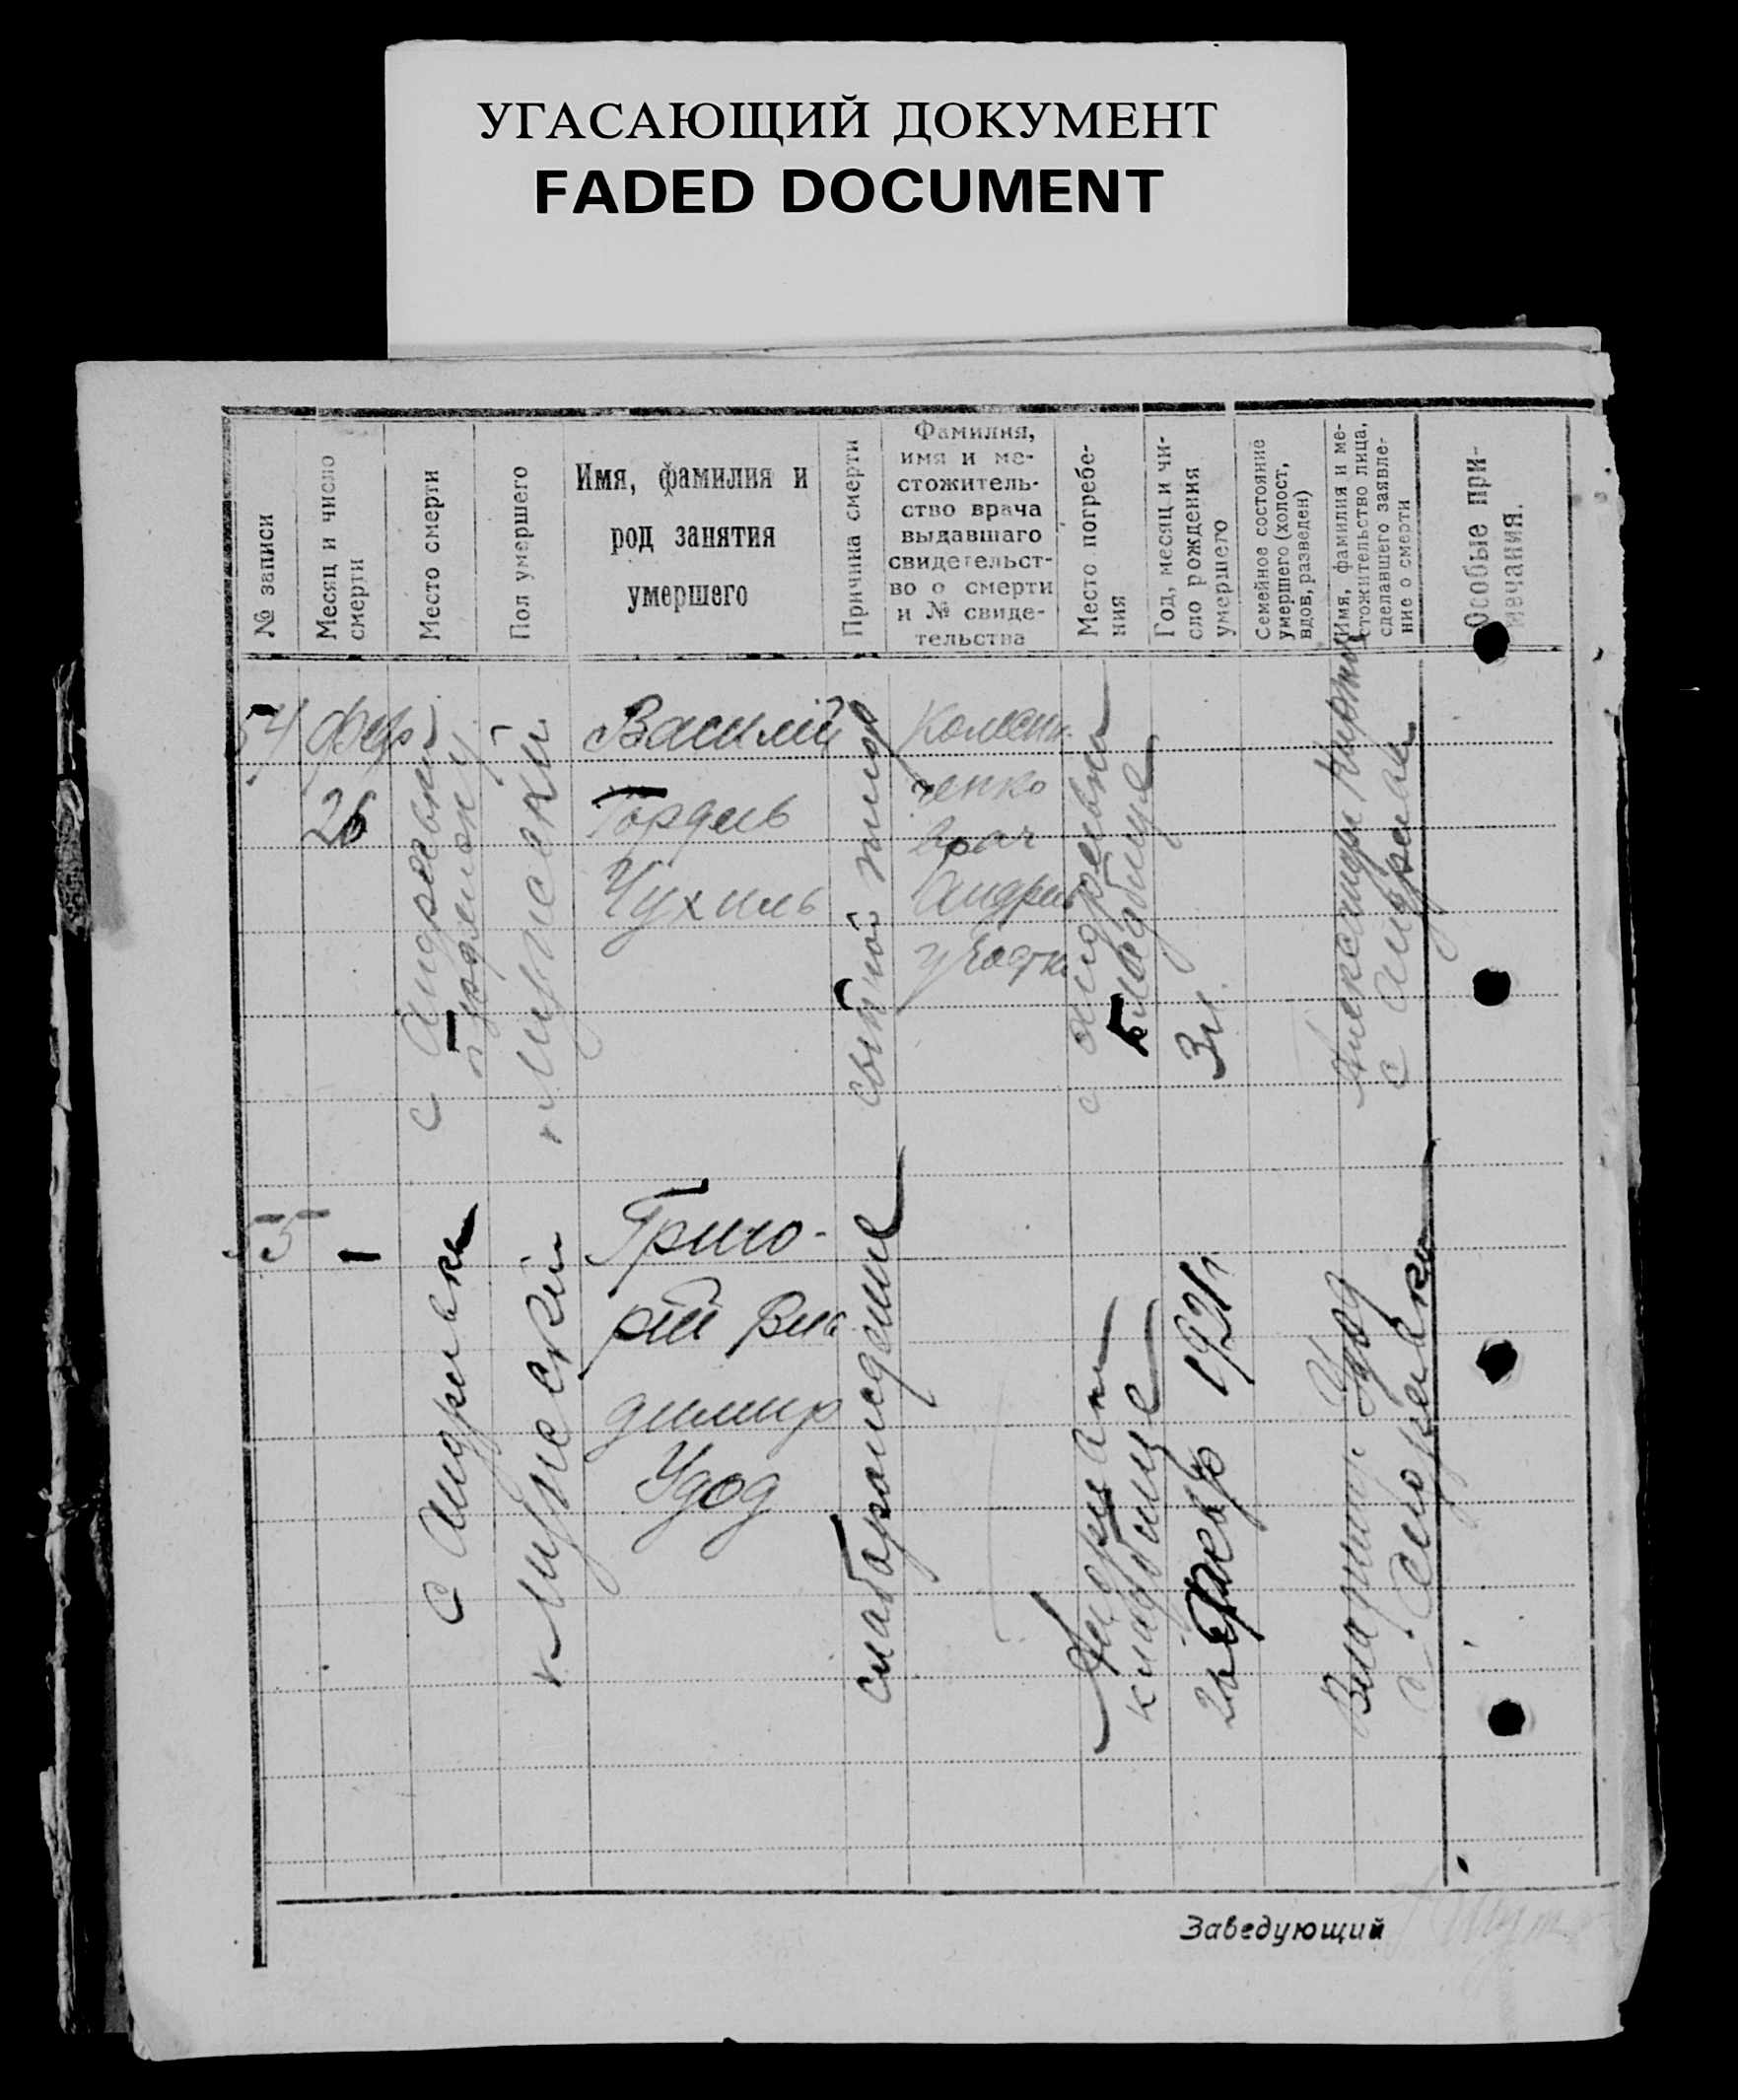 УГАСАЮЩИЙ ДОКУМЕНТ
FADED DOCUMENT
№ записи
Месяц и число
смерти
Место смерти
Пол умершего
Имя, фамилия и
род занятия
умершего
Причина смерти
Фамилия,
имя и ме-
стожитель-
ство врача
выдавшаго
свидетельст-
во о смерти
и № свиде-
тельства
Место погребе-
ния
Год, месяц и чи-
сло рождения
умершего
Семейное состояние
умершего (холост,
вдов, разведен)
Имя, фамилия и ме-
стожительство лица,
сделавшего заявле-
ние о смерти
Особые при-
мечания.
54
февр
26
с Андреевки
мужескій
Василій
Гордеев
Чухиль
сыпной тиф
врач
Андреев
участка
с Андреевка
кладбище
3 л.
Александр
с Андреевки
55
с Андреевка
мужескій
Григо-
рій Вла
димир
Удод
слаборождение
Андреевка
кладбище
1921 г
Владимир Удод
с Андреевка
Заведующий